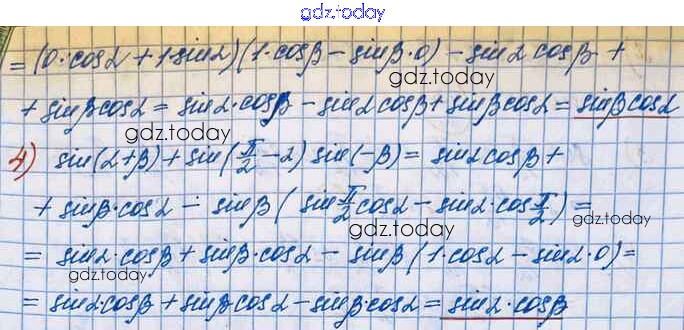 gdz.today
= (0·cosα + 1·sinα)(1·cosβ − sinβ·0) − sinα cosβ +
gdz.today
+ sinβ cosα = sinα·cosβ − sinα cosβ + sinβ cosα = sinβ cosα
gdz.today
4) sin(α+β) + sin(π/2 − α) sin(−β) = sinα cosβ +
+ sinβ·cosα − sinβ (sin π/2 cosα − sinα·cos π/2) =
gdz.today
= sinα·cosβ + sinβ·cosα − sinβ (1·cosα − sinα·0) =
gdz.today
= sinα·cosβ + sinβ cosα − sinβ·cosα = sinα·cosβ
gdz.today